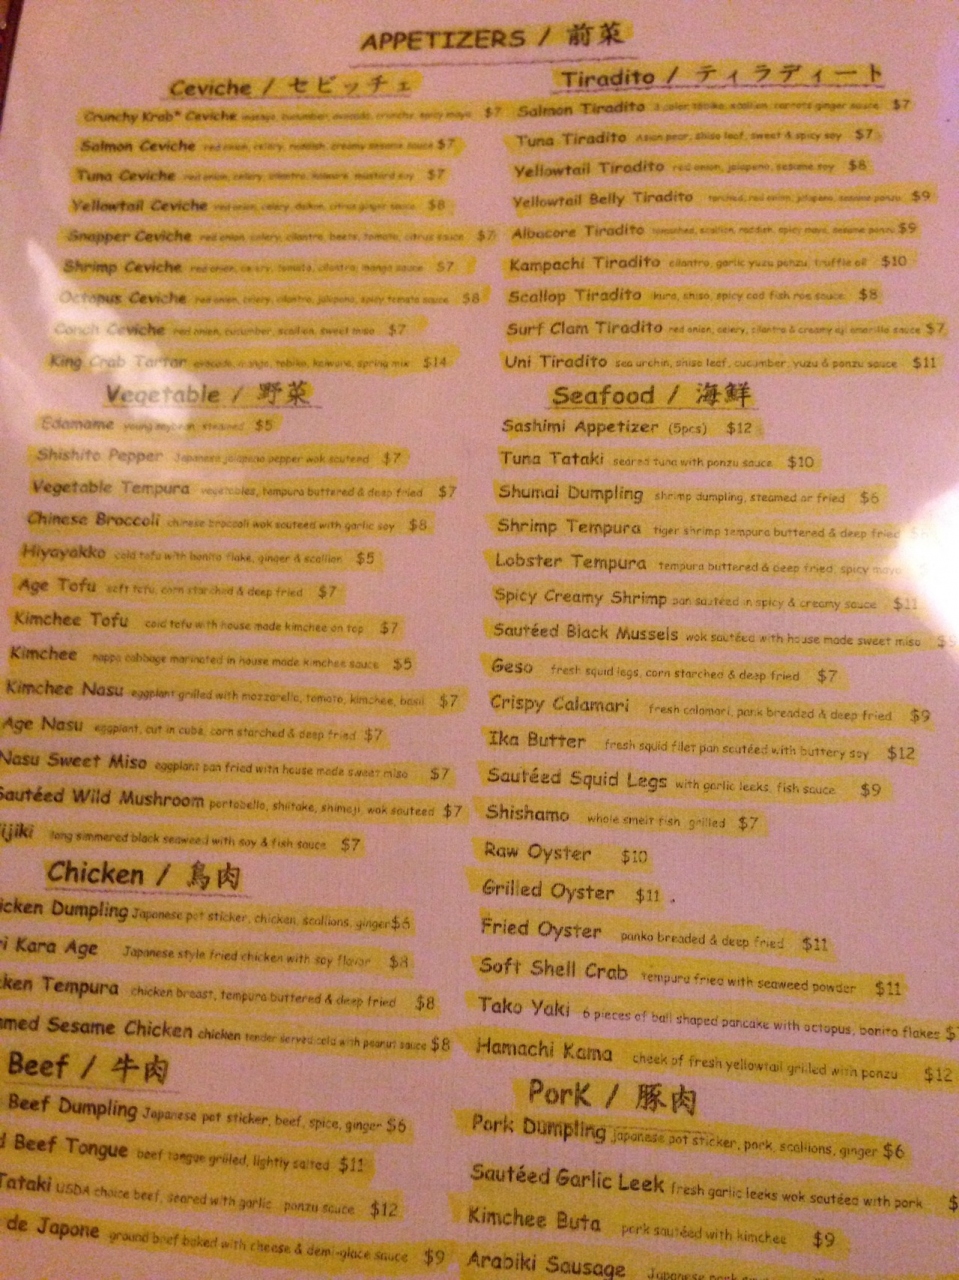 APPETIZERS / 前菜
Ceviche / セビッチェ
Crunchy Krab* Ceviche cucumber, avocado, crunchy, spicy mayo $7
Salmon Ceviche red onion, celery, creamy sesame sauce $7
Tuna Ceviche red onion, celery, cilantro, mustard soy $7
Yellowtail Ceviche red onion, celery, daikon, citrus ginger sauce $8
Snapper Ceviche red onion, celery, cilantro, beets, tomato, citrus sauce $7
Shrimp Ceviche red onion, celery, tomato, cilantro, mango sauce $7
Octopus Ceviche red onion, celery, cilantro, jalapeno, spicy tomato sauce $8
Conch Ceviche red onion, cucumber, scallion, sweet miso $7
King Crab Tartar avocado, mango, tobiko, spring mix $14
Vegetable / 野菜
Edamame young soybean, steamed $5
Shishito Pepper Japanese jalapeno pepper wok sauteed $7
Vegetable Tempura vegetables, tempura buttered & deep fried $7
Chinese Broccoli chinese broccoli wok sauteed with garlic soy $8
Hiyayakko cold tofu with bonito flake, ginger & scallion $5
Age Tofu soft tofu, corn starched & deep fried $7
Kimchee Tofu cold tofu with house made kimchee on top $7
Kimchee nappa cabbage marinated in house made kimchee sauce $5
Kimchee Nasu eggplant grilled with mozzarella, tomato, kimchee, basil $7
Age Nasu eggplant, cut in cube, corn starched & deep fried $7
Nasu Sweet Miso eggplant pan fried with house made sweet miso $7
Sautéed Wild Mushroom portobello, shiitake, shimeji, wok sauteed $7
ijiki long simmered black seaweed with soy & fish sauce $7
Chicken / 鳥肉
icken Dumpling Japanese pot sticker, chicken, scallions, ginger $6
ri Kara Age Japanese style fried chicken with soy flavor $8
cken Tempura chicken breast, tempura buttered & deep fried $8
med Sesame Chicken chicken tender served cold with peanut sauce $8
Beef / 牛肉
Beef Dumpling Japanese pot sticker, beef, spice, ginger $6
d Beef Tongue beef tongue grilled, lightly salted $11
Tataki USDA choice beef, seared with garlic ponzu sauce $12
de Japone ground beef baked with cheese & demi-glace sauce $9
Tiradito / ティラディート
Salmon Tiradito 3 color tobiko, scallion, carrots ginger sauce $7
Tuna Tiradito Asian pear, shiso leaf, sweet & spicy soy $7
Yellowtail Tiradito red onion, jalapeno, sesame soy $8
Yellowtail Belly Tiradito red onion, jalapeno, sesame ponzu $9
Albacore Tiradito tomatoes, scallion, radish, spicy mayo, sesame ponzu $9
Kampachi Tiradito cilantro, garlic yuzu ponzu, truffle oil $10
Scallop Tiradito kura, shiso, spicy cod fish roe sauce $8
Surf Clam Tiradito red onion, celery, cilantro & creamy aji amarillo sauce $7
Uni Tiradito sea urchin, shiso leaf, cucumber, yuzu & ponzu sauce $11
Seafood / 海鮮
Sashimi Appetizer (5pcs) $12
Tuna Tataki seared tuna with ponzu sauce $10
Shumai Dumpling shrimp dumpling, steamed or fried $6
Shrimp Tempura tiger shrimp tempura buttered & deep fried
Lobster Tempura tempura buttered & deep fried, spicy mayo
Spicy Creamy Shrimp pan sautéed in spicy & creamy sauce $11
Sautéed Black Mussels wok sautéed with house made sweet miso
Geso fresh squid legs, corn starched & deep fried $7
Crispy Calamari fresh calamari, pank breaded & deep fried $9
Ika Butter fresh squid filet pan scutéed with buttery soy $12
Sautéed Squid Legs with garlic leeks, fish sauce $9
Shishamo whole smelt fish, grilled $7
Raw Oyster $10
Grilled Oyster $11
Fried Oyster panko breaded & deep fried $11
Soft Shell Crab tempura fried with seaweed powder $11
Tako Yaki 6 pieces of ball shaped pancake with octopus, bonito flakes
Hamachi Kama cheek of fresh yellowtail grilled with ponzu $12
PorK / 豚肉
Pork Dumpling japanese pot sticker, pork, scallions, ginger $6
Sautéed Garlic Leek fresh garlic leeks wok sautéed with pork $
Kimchee Buta pork sautéed with kimchee $9
Arabiki Sausage